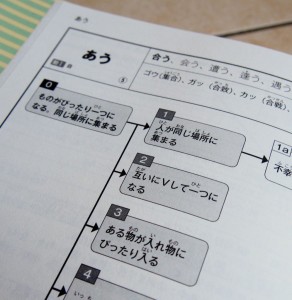 あう
あう
合う、会う、遭う、逢う、遇う
ゴウ(集合)、ガッ(合戦)、カッ(合戦)、
0
ものがぴったり一つに
なる、同じ場所に集まる
1
人が同じ場所に
集まる
1a
不幸
2
互いにVして一つに
なる
3
ある物が入れ物に
ぴったり入る
4